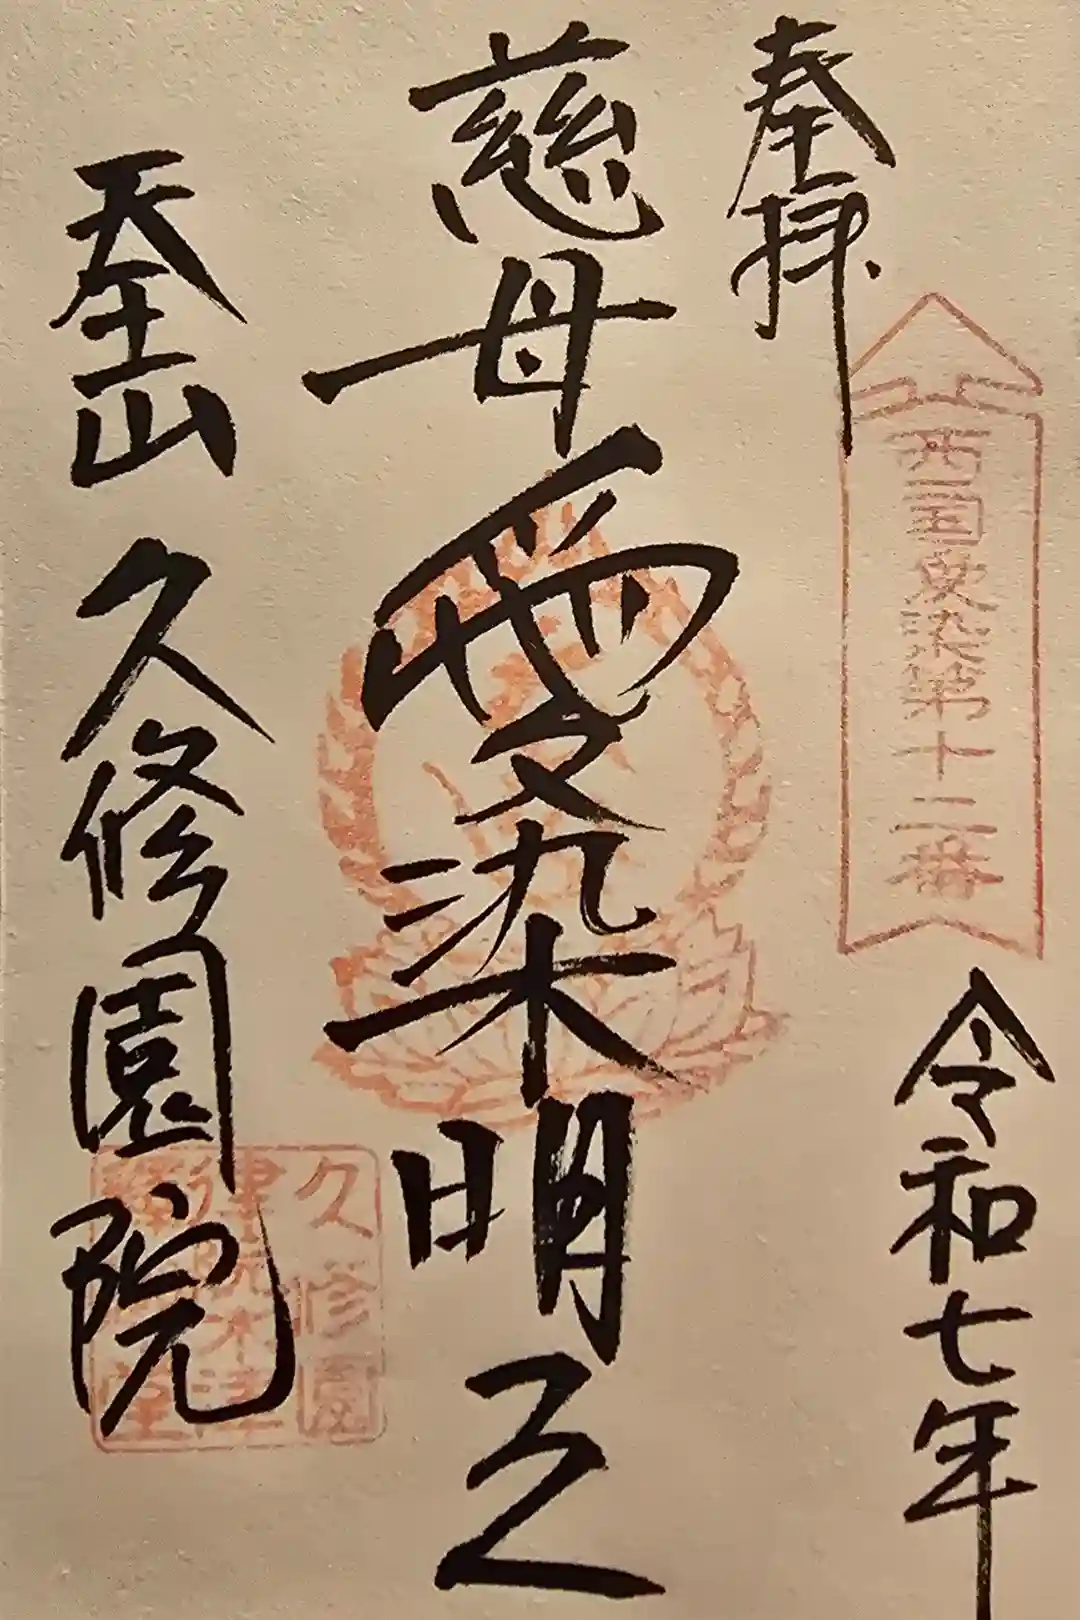 奉拝
西国愛染第十二番
令和七年
慈母愛染明王
天王山久修園院
久修園
律院木津